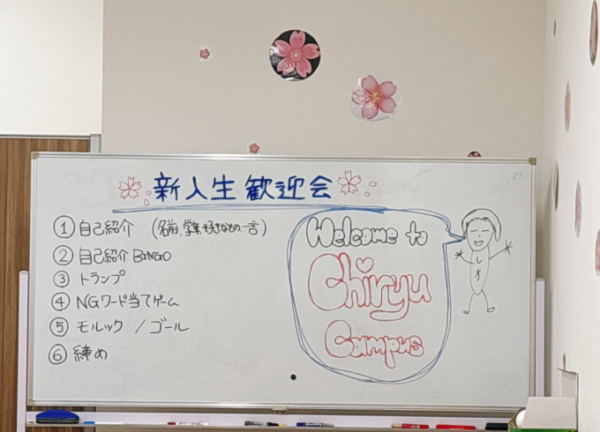 新入生歓迎会
① 自己紹介 (名前、学年、好きなもの、一言)
② 自己紹介 BINGO
③ トランプ
④ NGワード当てゲーム
⑤ モルック / ゴール
⑥ 締め
Welcome to
Chiryu
Campus